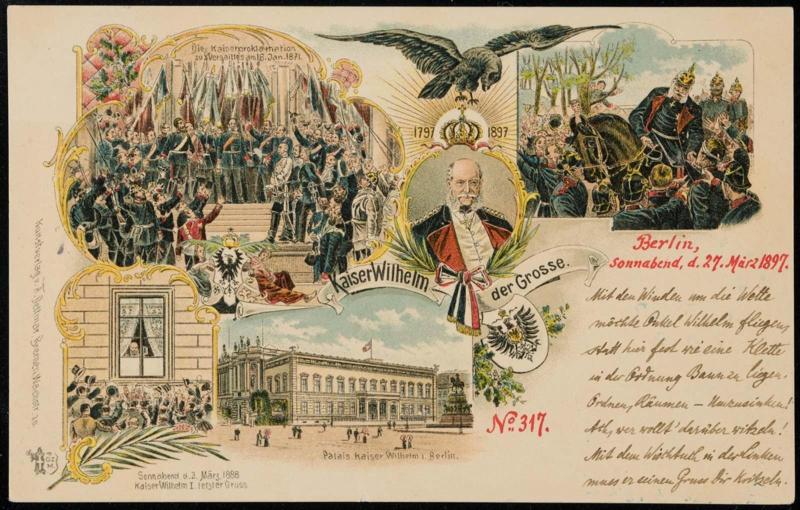 Die Kaiserproklamation
zu Versailles am 18. Jan. 1871.
1797 1897
Kaiser Wilhelm der Grosse.
Berlin,
Sonnabend, d. 27. März 1897.
Mit den Winden um die Wette
möchte Onkel Wilhelm fliegen,
statt hier fest wie eine Klette
in der Ordnung Bann zu liegen.
Ordnen, Räumen – Umzusinken!
Ach, wer wollt' darüber witzeln!
Mit dem Wischtuch in der Linken
muss er seinen Gruss Dir kritzeln.
No. 317.
Palais Kaiser Wilhelm I. Berlin.
Sonnabend d. 3. März 1888
Kaiser Wilhelm I. letzter Gruss.
Kunstverlag v. Bremen